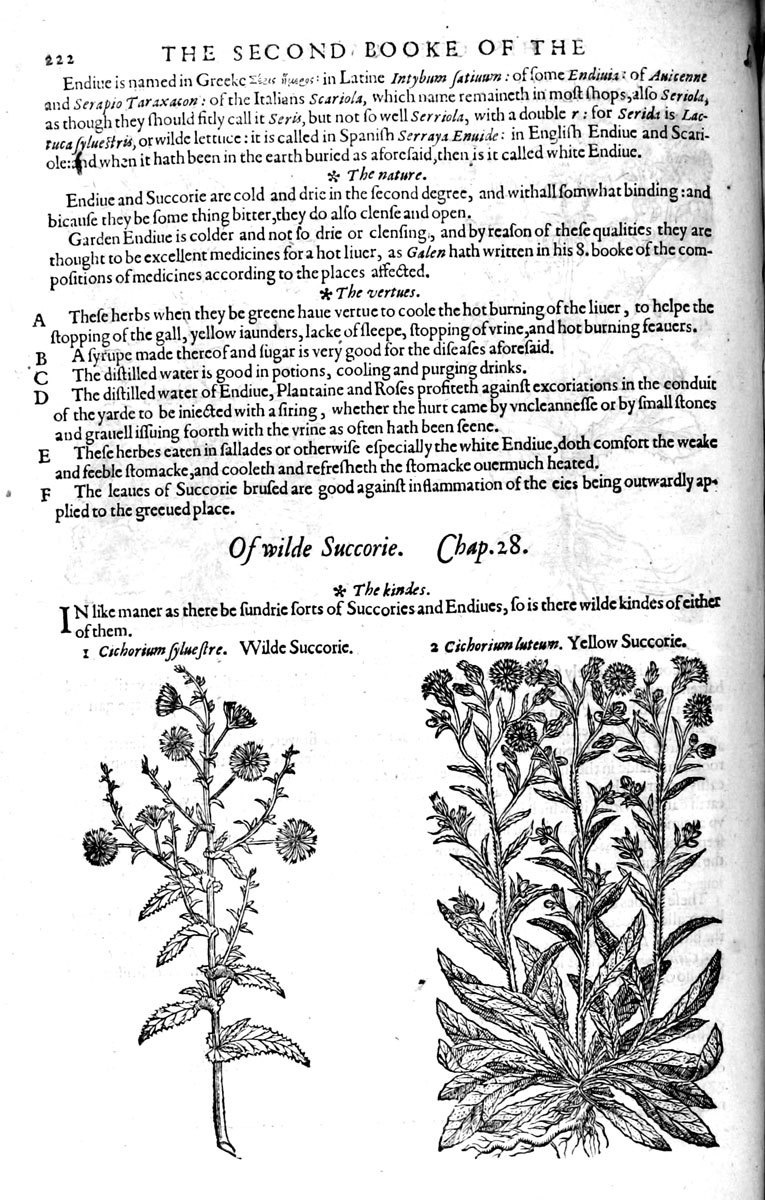 222 THE SECOND BOOKE OF THE
Endiue is named in Greeke : in Latine Intybum ſatiuum : of ſome Endiuia : of Auicenne
and Serapio Taraxacon : of the Italians Scariola, which name remaineth in moſt ſhops, alſo Seriola,
as though they ſhould fitly call it Seris, but not ſo well Serriola, with a double r : for Serida is Lac-
tuca ſylueſtris, or wilde lettuce : it is called in Spaniſh Serraya Enuide : in Engliſh Endiue and Scari-
ole: and when it hath been in the earth buried as aforeſaid, then is it called white Endiue.
* The nature.
Endiue and Succorie are cold and drie in the ſecond degree, and withall ſomwhat binding : and
bicauſe they be ſome thing bitter, they do alſo clenſe and open.
Garden Endiue is colder and not ſo drie or clenſing, and by reaſon of theſe qualities they are
thought to be excellent medicines for a hot liuer, as Galen hath written in his 8. booke of the com-
poſitions of medicines according to the places affected.
* The vertues.
A Theſe herbs when they be greene haue vertue to coole the hot burning of the liuer, to helpe the
ſtopping of the gall, yellow iaunders, lacke of ſleepe, ſtopping of vrine, and hot burning feauers.
B A ſyrupe made thereof and ſugar is very good for the diſeaſes aforeſaid.
C The diſtilled water is good in potions, cooling and purging drinks.
D The diſtilled water of Endiue, Plantaine and Roſes profiteth againſt excoriations in the conduit
of the yarde to be iniected with a ſiring, whether the hurt came by vncleanneſſe or by ſmall ſtones
and grauell iſſuing foorth with the vrine as often hath been ſeene.
E Theſe herbes eaten in ſallades or otherwiſe eſpecially the white Endiue, doth comfort the weake
and feeble ſtomacke, and cooleth and refreſheth the ſtomacke ouermuch heated.
F The leaues of Succorie bruſed are good againſt inflammation of the eies being outwardly ap-
plied to the greeued place.
Of wilde Succorie. Chap. 28.
* The kindes.
IN like maner as there be ſundrie ſorts of Succories and Endiues, ſo is there wilde kindes of either
of them.
1 Cichorium ſylueſtre. Wilde Succorie.
2 Cichorium luteum. Yellow Succorie.